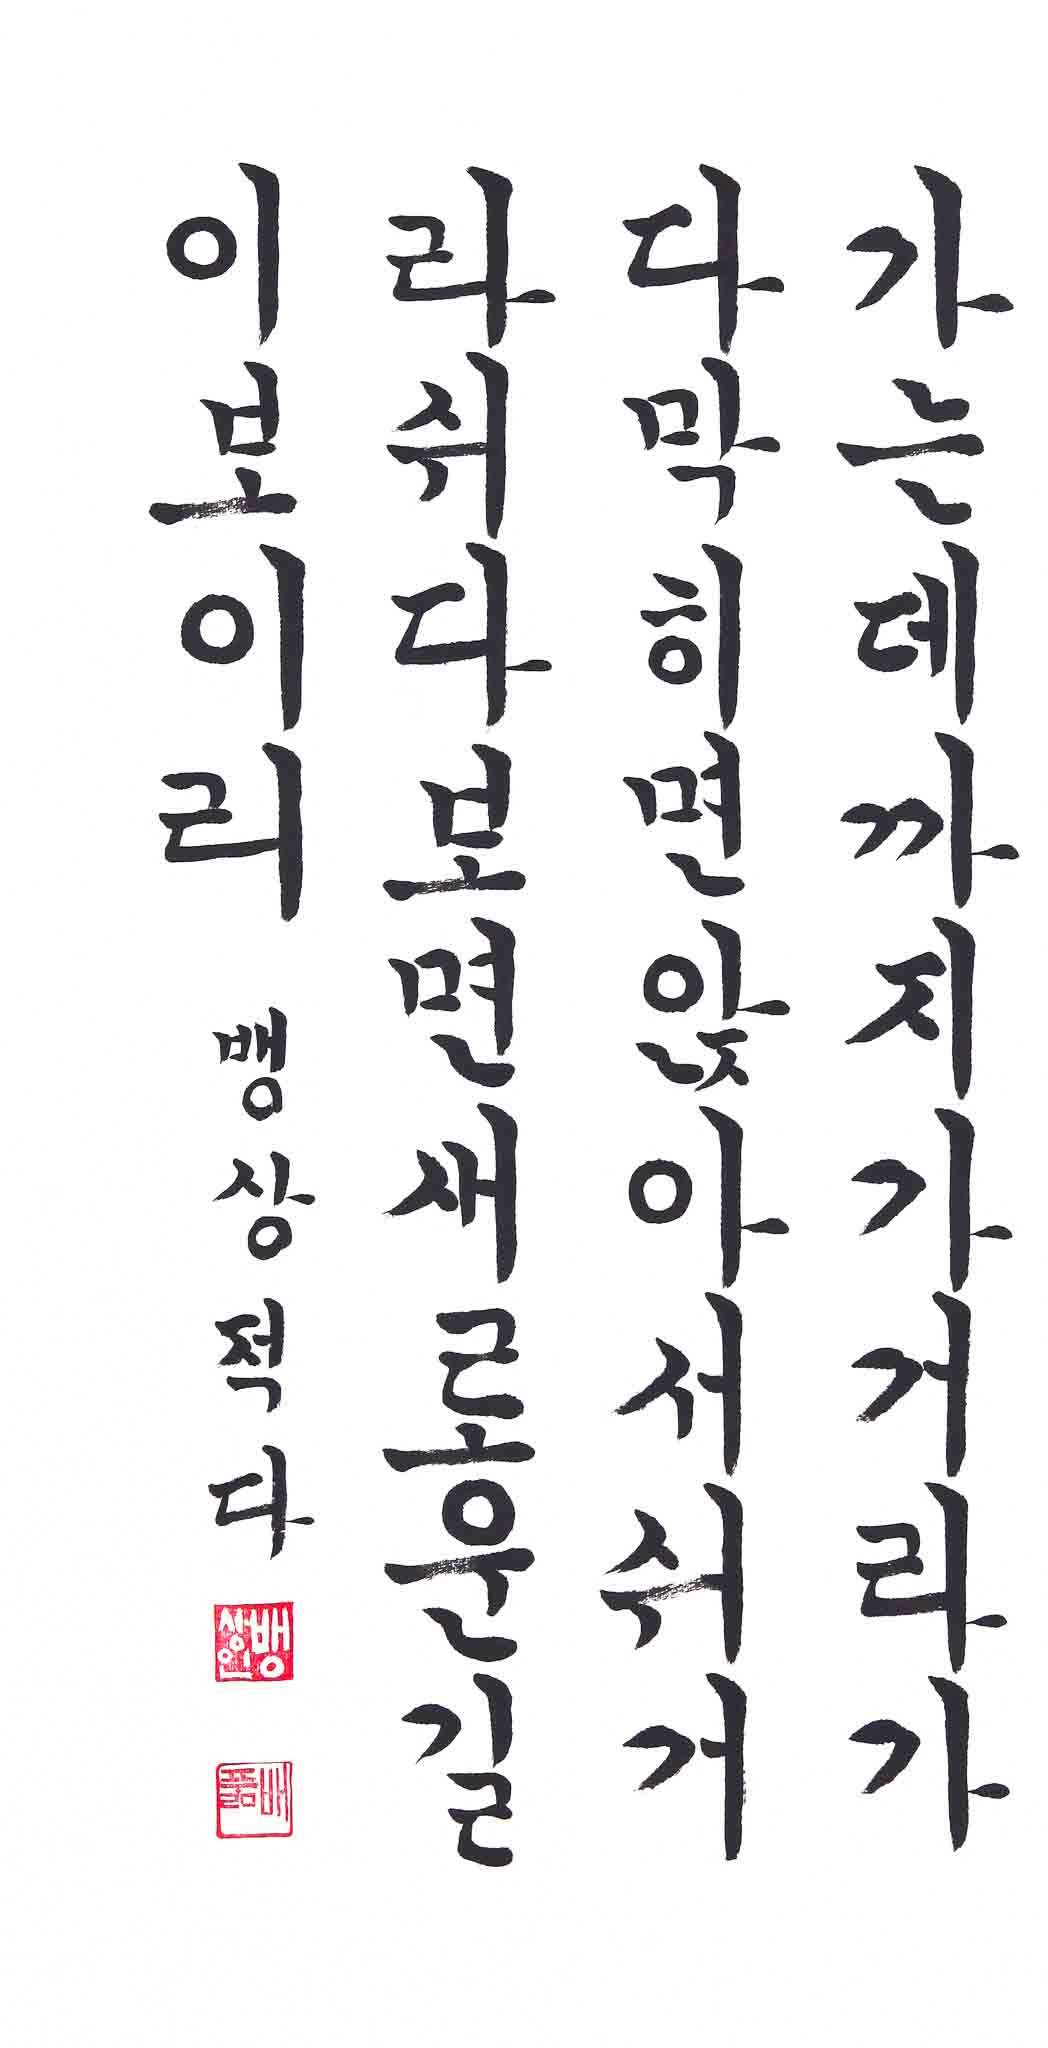 가는데까지가거라가
다막히면앉아서쉬거
라쉬다보면새로운길
이보이리
뱅상적다
뱅상인